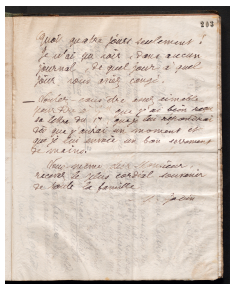 203
Quoi, quatre jours seulement!
Je n'ai pu voir, dans aucun
journal, de quel jour à quel
jour vous aviez congé.
— Voulez-vous être assez aimable
pour dire à que j'ai bien reçu
sa lettre du 1er que je lui répondrai
dès que j'aurai un moment et
que je lui envoie un bon serrement
de mains.
Vous même, cher Monsieur,
recevez le plus cordial souvenir
de toute la famille.